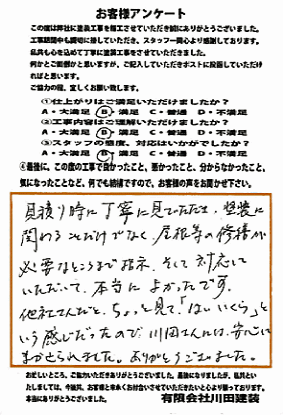 お客様アンケート
この度は弊社に塗装工事を施工させていただき誠にありがとうございました。
工事期間中も親切に接していただき、スタッフ一同心より感謝しております。
私共も心を込めて丁寧に塗装工事をさせていただきました。
何かとご面倒かと思いますが、ご記入していただきポストに投函していただけ
ればと思います。
ご協力の程、宜しくお願い致します。
①仕上がりはご満足いただけましたか？
A・大満足 B・満足 C・普通 D・不満足
②工事内容はご理解いただけましたか？
A・大満足 B・満足 C・普通 D・不満足
③スタッフの態度、対応はいかがでしたか？
A・大満足 B・満足 C・普通 D・不満足
④最後に、この度の工事で良かったこと、悪かったこと、分からなかったこと、
気になったことなど、何でも結構ですので、お客様の声をお聞かせ下さい。
見積り時に丁寧に見ていただき、塗装に
関わることだけがなく、屋根等の修繕が
必要なところまで指示、そして対応して
いただいて、本当に よかったです。
他社さんだと、ちょっと見て「はい いくら」と
いう感じだったので、川田さんには、安心して
まかせられました。ありがとうございました。
お忙しいところ、ご協力いただきありがとうございました。最後になりましたが、私共といた
しましては、今後共、お客様と末永くお付合いさせていただきたいと心より願っております。
本当にありがとうございました。 有限会社川田建装